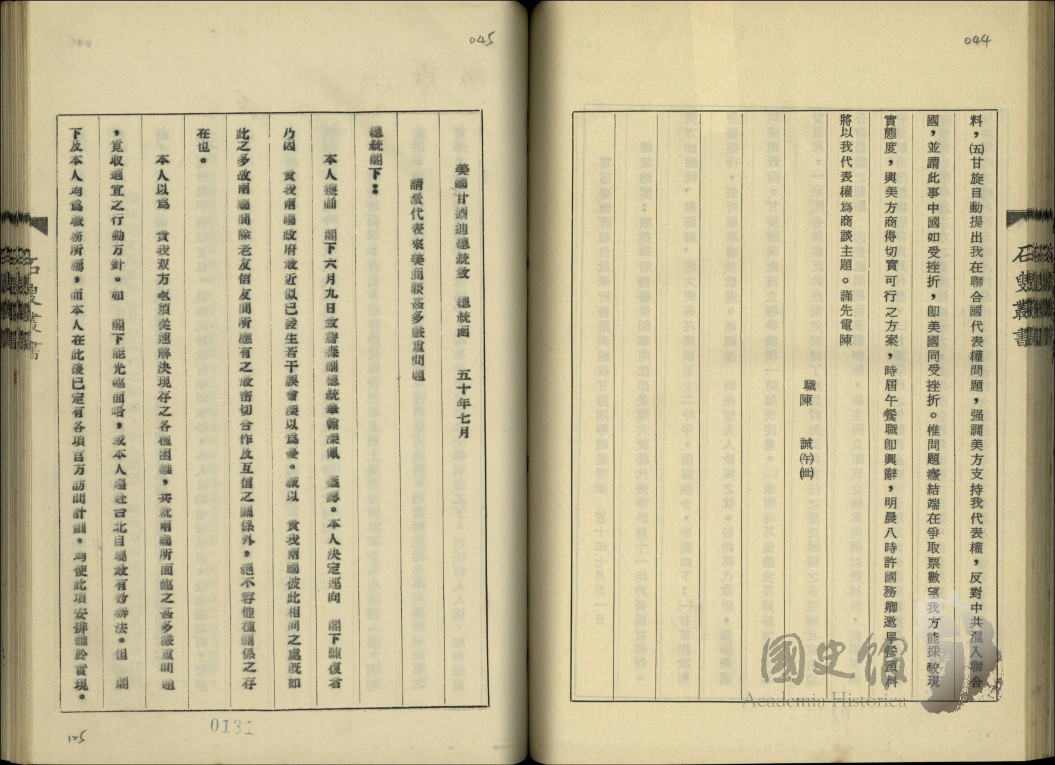 044
料，㈤甘旋自動提出我在聯合國代表權問題，强調美方支持我代表權，反對中共混入聯合
國，並謂此事中國如受挫折，卽美國同受挫折。惟問題癥結端在爭取票數望我方能採較現
實態度，與美方商得切實可行之方案，時屆午餐職卽興辭，明晨八時許國務卿邀早餐預料
將以我代表權爲商談主題。謹先電陳
職陳　誠㈣㈩
石叟叢書
國史館
Academia Historica
045
美國甘迺迪總統致　總統函　五十年七月
請派代表來美商談甚多嚴重問題
總統閣下：
本人獲誦　閣下六月九日致詹森副總統華翰深佩　藎籌。本人決定逕向　閣下陳復者
乃因　貴我兩國政府最近似已發生若干誤會深以爲憂。誠以　貴我兩國彼此相同之處旣如
此之多故兩國間除老友信友間所應有之最密切合作及互信之關係外，絕不容他種關係之存
在也。
本人以爲　貴我双方必須從速解決現存之各種困難，共就兩國所面臨之甚多嚴重問題
，覓取適宜之行動方針。如　閣下能光臨面晤，或本人趨赴台北自屬最有效辦法。但　閣
下及本人均爲職務所羈，而本人在此後已定有各項官方訪問計劃，均使此項安排難於實現。
石叟叢書
0131
125